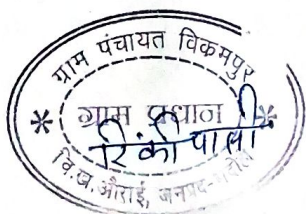 ग्राम पंचायत विकमपुर
ग्राम प्रधान
रिंकी पाल
वि.ख. औराई, जनपद-